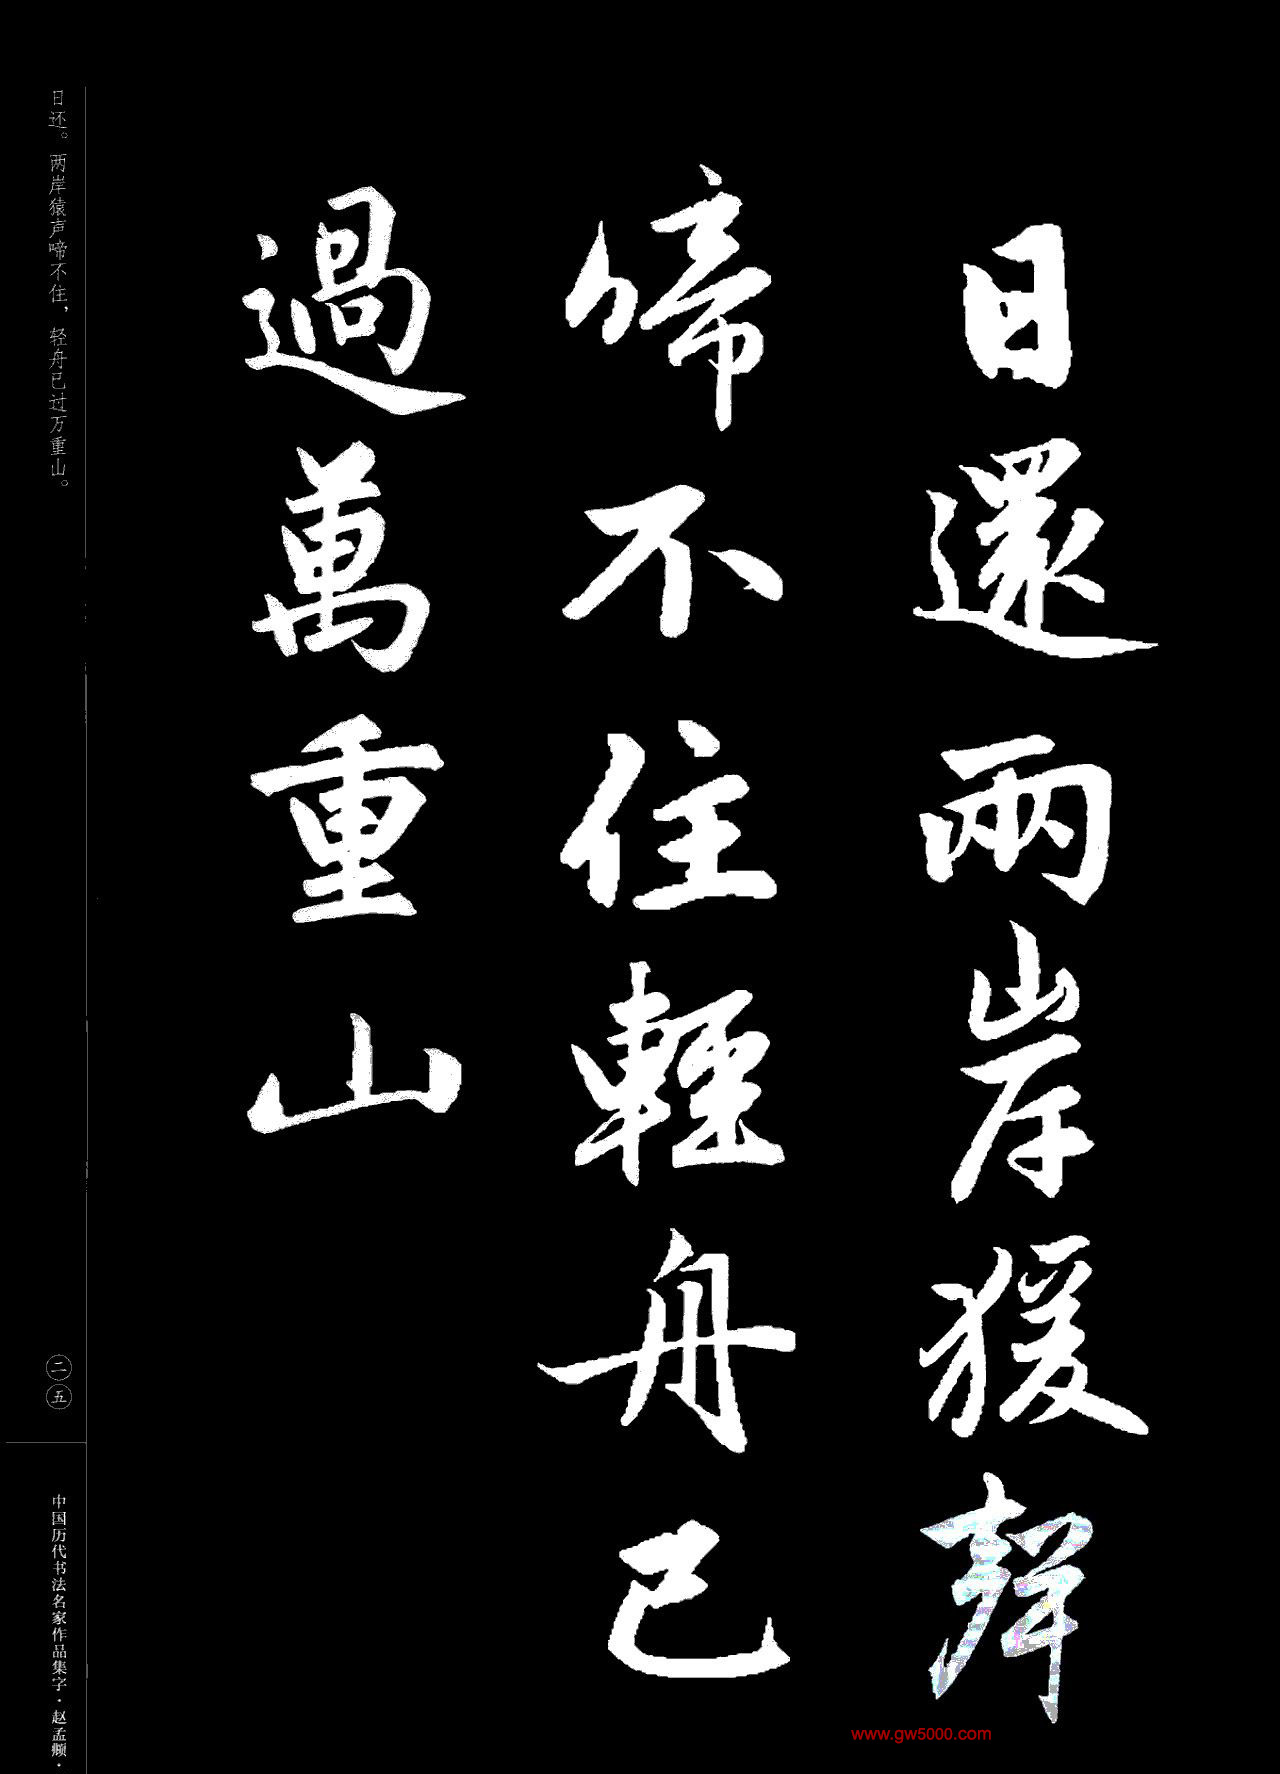 日還兩岸猨聲
啼不住輕舟已
過萬重山
日还。两岸猿声啼不住，轻舟已过万重山。
二五
中国历代书法名家作品集字·赵孟頫·
www.gw5000.com